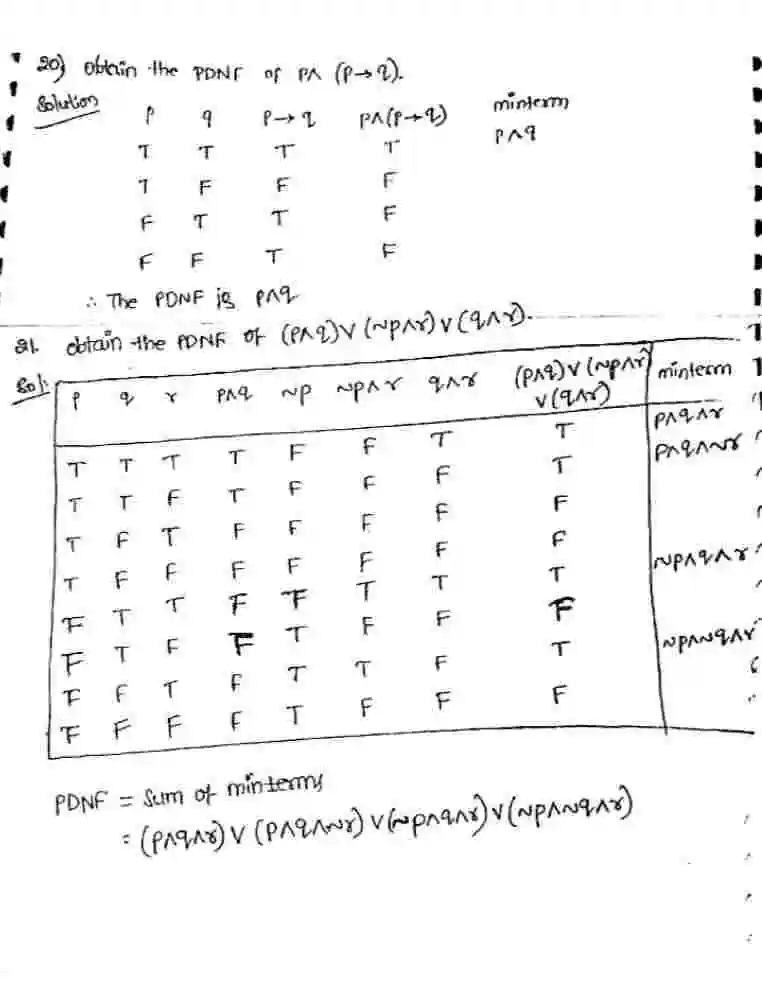 20) obtain the PDNF of P∧ (P→q).
Solution
P q P→q P∧(P→q) minterm
T T T T P∧q
T F F F
F T T F
F F T F
∴ The PDNF is P∧q
21. obtain the PDNF of (P∧q)∨(~p∧r)∨(q∧r).
Sol:
P q r P∧q ~p ~p∧r q∧r (p∧q)∨(~p∧r)∨(q∧r) minterm
T T T T F F T T P∧q∧r
T T F T F F F T P∧q∧~r
T F T F F F F F
T F F F F F F F
F T T F F T T T ~p∧q∧r
F T F F T F F F
F F T F T T F T ~p∧~q∧r
F F F F T F F F
PDNF = Sum of minterms
= (p∧q∧r) ∨ (p∧q∧~r) ∨ (~p∧q∧r) ∨ (~p∧~q∧r)